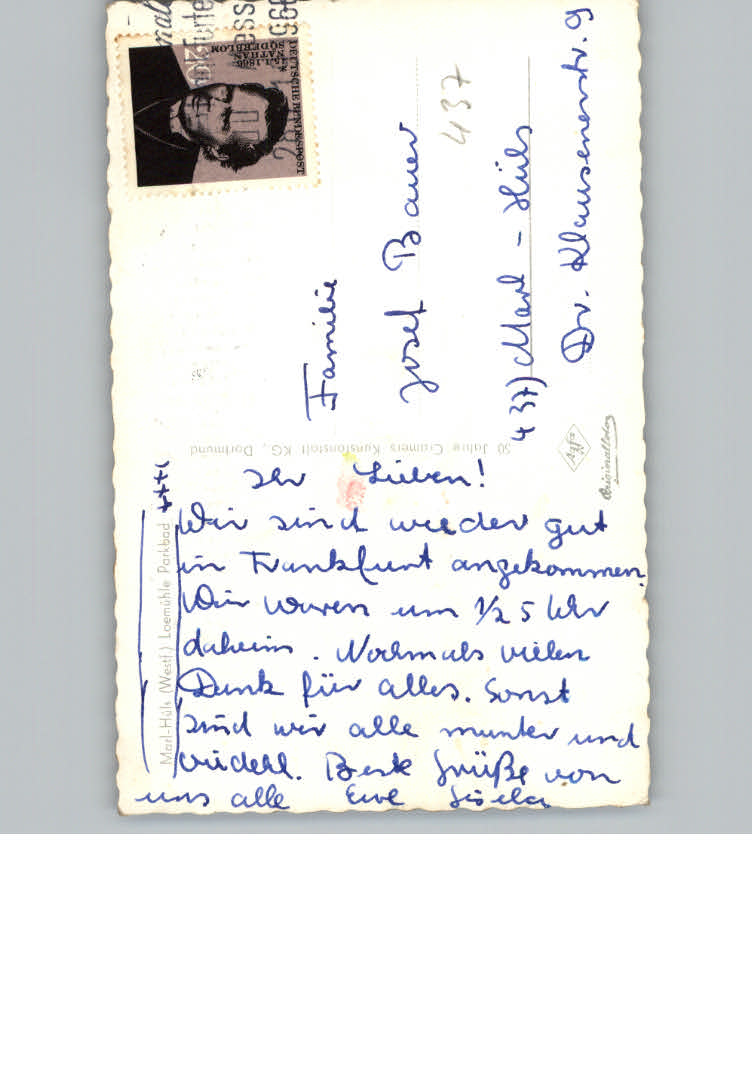 Ihr Lieben!
Wir sind wieder gut
in Frankfurt angekommen.
Wir waren um 1/2 5 Uhr
daheim. Nochmals vielen
Dank für alles. Sonst
sind wir alle munter und
fidell. Beste Grüße von
uns alle Eure Gisela
Marl-Hüls (Westf.) Loemühle Parkbad
50 Jahre Cramers Kunstanstalt KG, Dortmund
Familie
Josef Bauer
437
437) Marl-Hüls
Dr. Klausenerstr. 9
Agfa
Originalfoto
DEUTSCHE BUNDESPOST
NATHAN
SÖDERBLOM